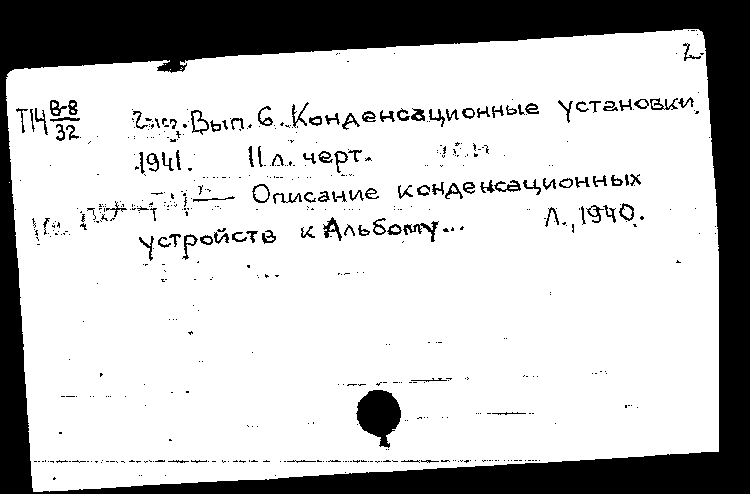 2
Т14 В-8/32 2 экз. Вып. 6. Конденсационные установки.
1941. 11 л. черт.
— Описание конденсационных
устройств к Альбому... Л., 1940.